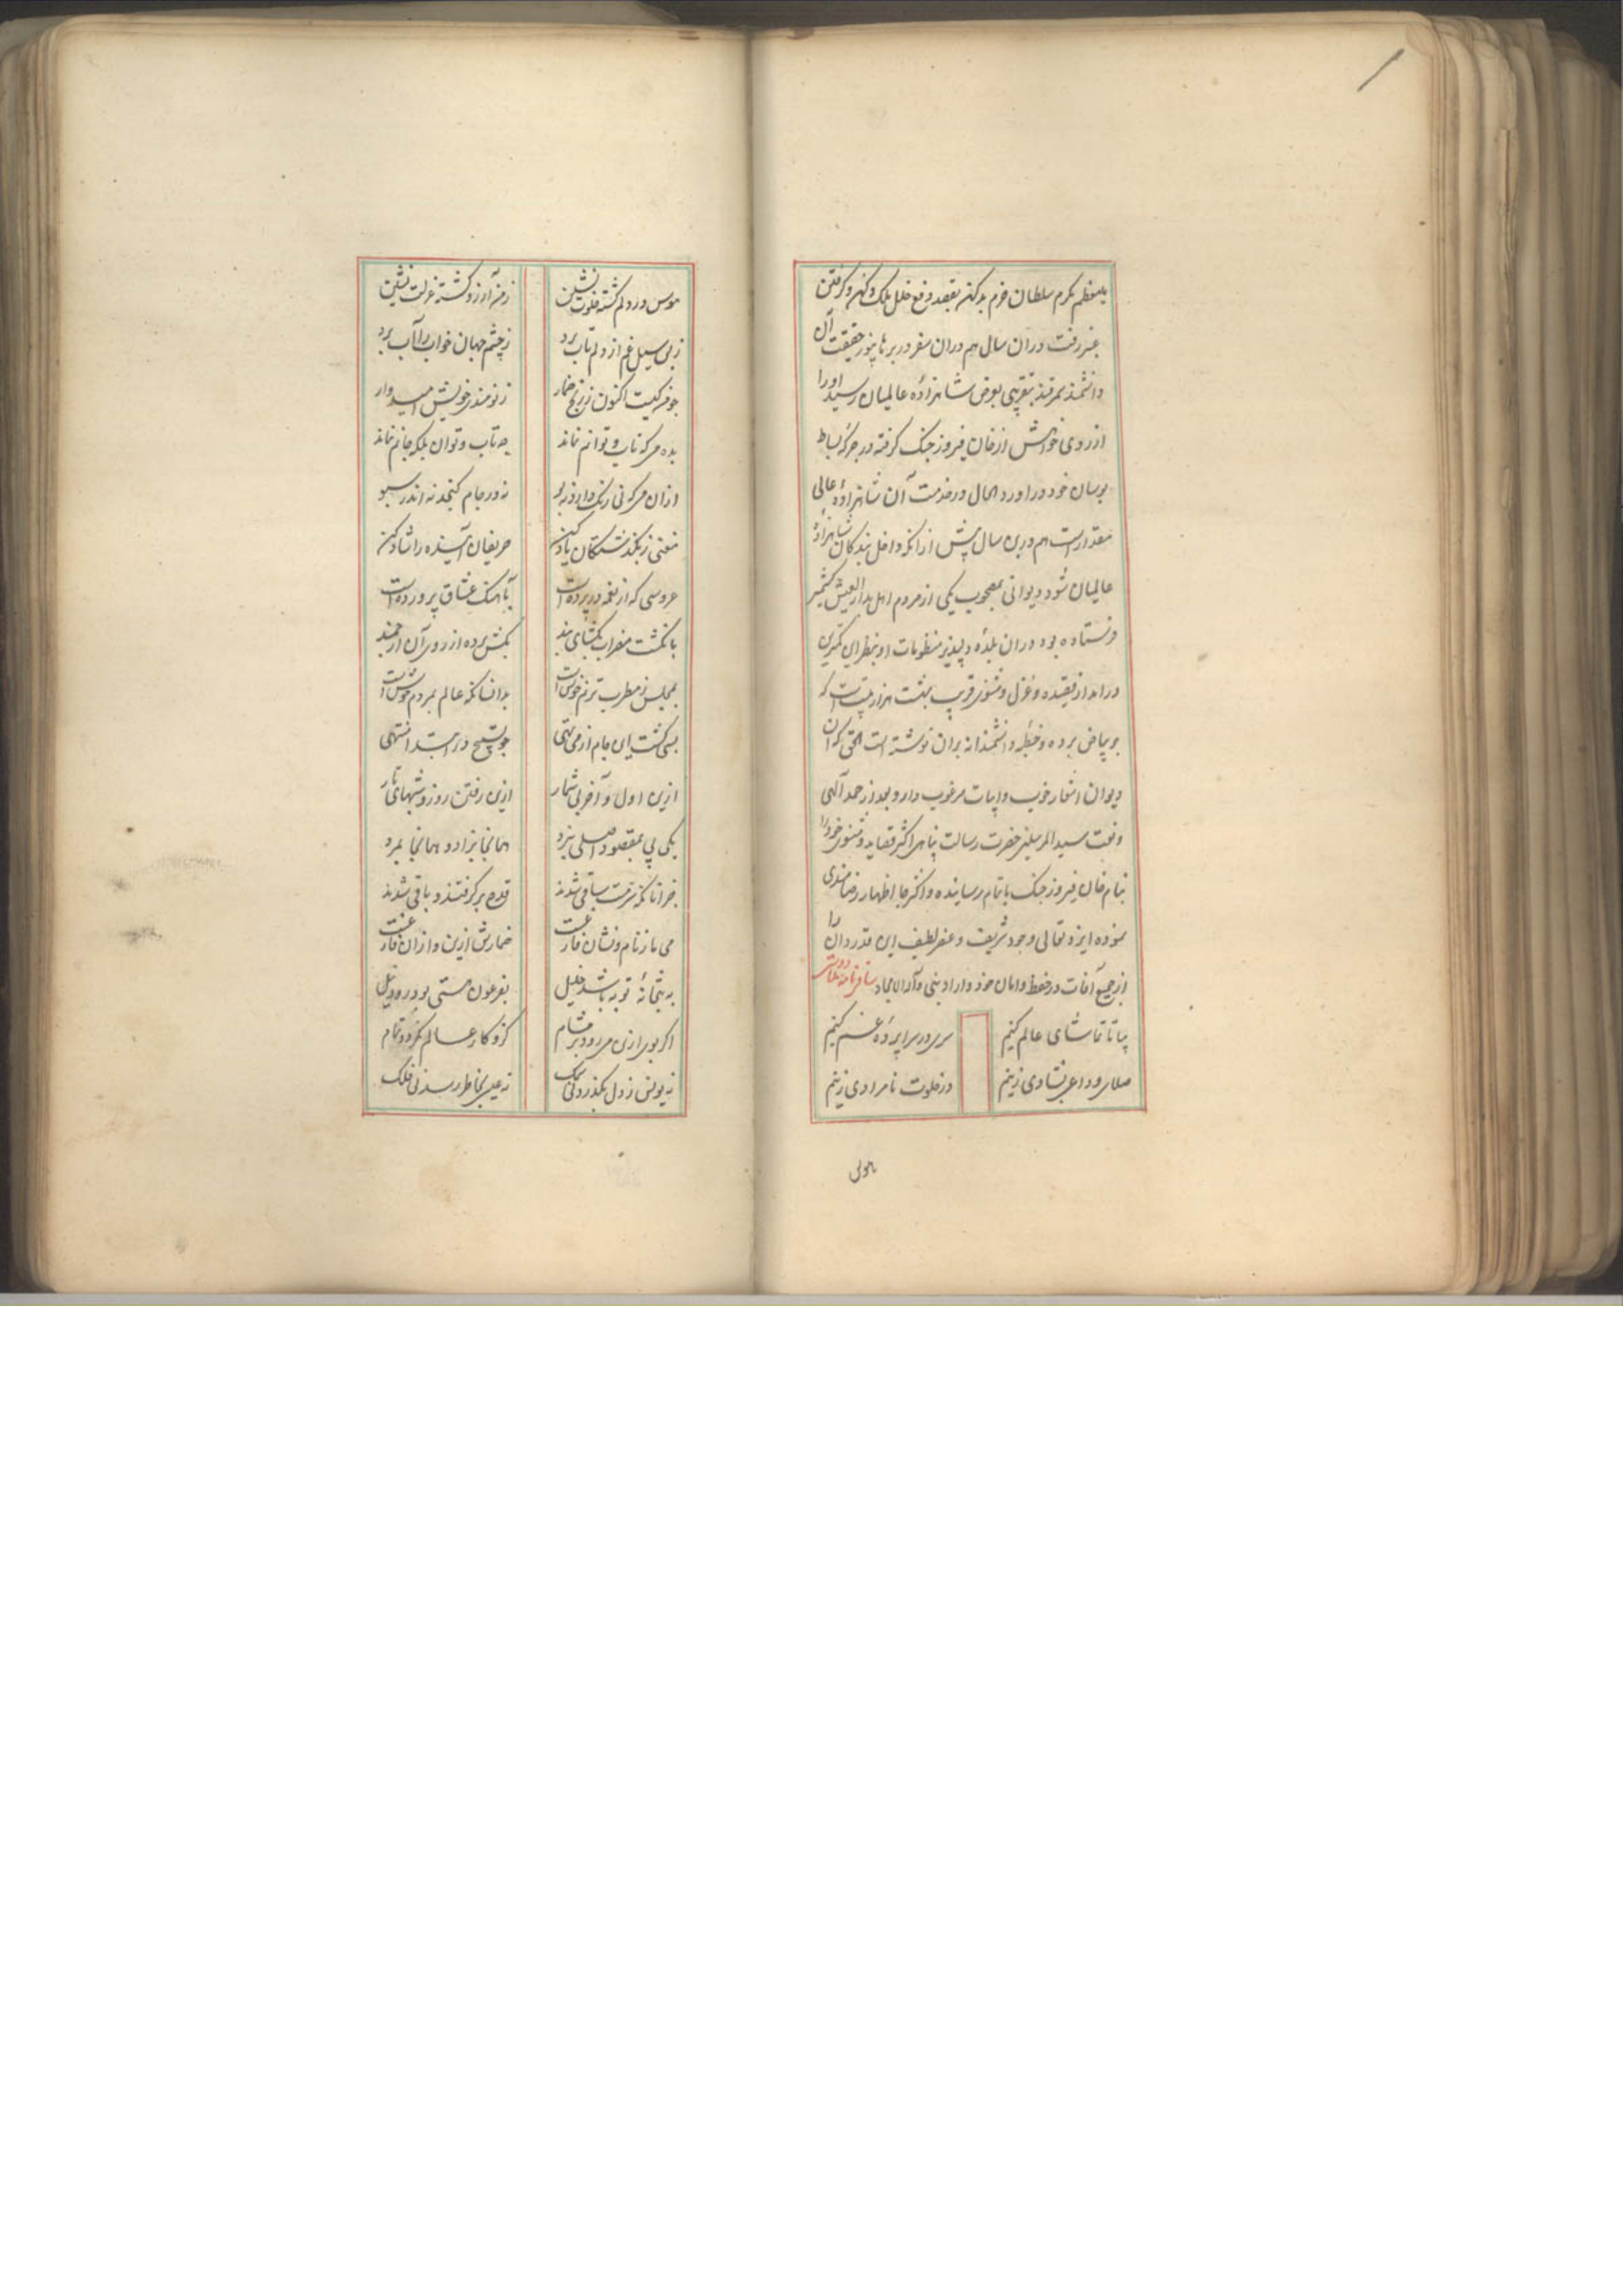 معظم مکرم سلطان خرم بدکن بقصد دفع خلل ملک کهنه و گرفتن
عنبر رفت در آن سال هم در آن سفر در برهانپور حقیقت آن
دانشمند سمرقند بتقریبی بعرض شاهزاده عالمیان رسید او را
از روی خواهش از خان فیروز جنک گرفته در جرگه بساط
بوسان خود در آورد الحال در خدمت آن شاهزاده عالی
مقدار است هم درین سال پیش از آنکه داخل بندگان شاهزاده
عالمیان شود دیوانی بمصحوب یکی از مردم اهل بدار العیش کشمیر
فرستاده بود در ان بلده دلپذیر منظومات او بنظر این کمترین
در امد از قصیده و غزل و مثنوی قریب بهشت هزار بیت است که
بر بیاض برده و خطبه دانشمندانه بران نوشته است الحق که آن
دیوان اشعار خوب و ابیات مرغوب دارد بعد از حمد آلهی
و نعت سید المرسلین حضرت رسالت پناهی اکثر قصاید و مثنوی خود را
بنام خان فیروز جنک باتمام رسانیده و اکثر جا اظهار رضامندی
نموده ایزد تعالی وجود شریف و عنصر لطیف این قدردان را
از جمیع آفات در حفظ و امان خود دارد بنی و آله الامجاد ساقی نامه
بیا تا تماشای عالم کنیم سری در سراپرده غم کنیم
صلای وداعی بشادی زنیم در خلوت نامرادی زنیم
هوس در دلم گشته خلوت نشین زمن آرزو گشته عزلت نشین
ز بس سیل غم از دلم تاب برد ز چشم جهان خواب را آب برد
اکنون ز رنج خمار ز نومیدی خویش امیدوار
بده می که تاب و توانم نماند چه تاب و توان بلکه جانم نماند
ازان می که نی رنک دارد نه بو نه در جام گنجد نه اندر سبو
مغنی ز بگذشتگان یاد کن حریفان آینده را شاد کن
عروسی که از نغمه در پرده است بآهنک عشاق پرورده است
بانگشت مضراب بگشای بند بکش پرده از روی آن ارجمند
بمجلس ز مطرب ترنم خوش است بدانسانکه عالم بمردم خوش است
بسی گشت این جام از می تهی چو تسبیح در ابتدا منتهی
ازین اول و آخر بی شمار ازین رفتن روز و شبهای تار
یکی پی بمقصود اصلی نبرد همانجا بزاد و همانجا بمرد
جز آنانکه سرمست ساقی شدند قدح بر گرفتند و باقی شدند
می ما ز نام و نشان فارغست خمارش ازین و ازان فارغست
به بتخانه توبه باشد خلیل بفرعون هستی بود رود نیل
اگر بوی ازین می رود بر مشام کزو کار عالم نگردد تمام
نه یونس ز دل بگذرد نی سمک نه عیسی بخاطر رسد نی فلک
هوس